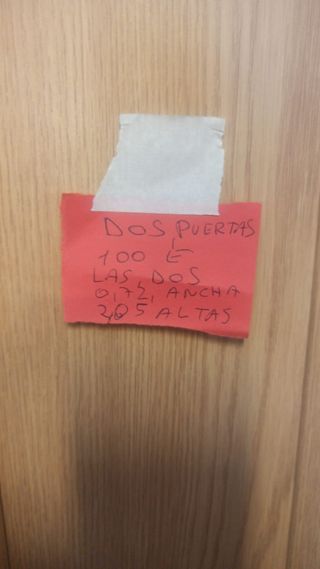 DOS PUERTAS
100 €
LAS DOS
0,72, ANCHA
2,05 ALTAS